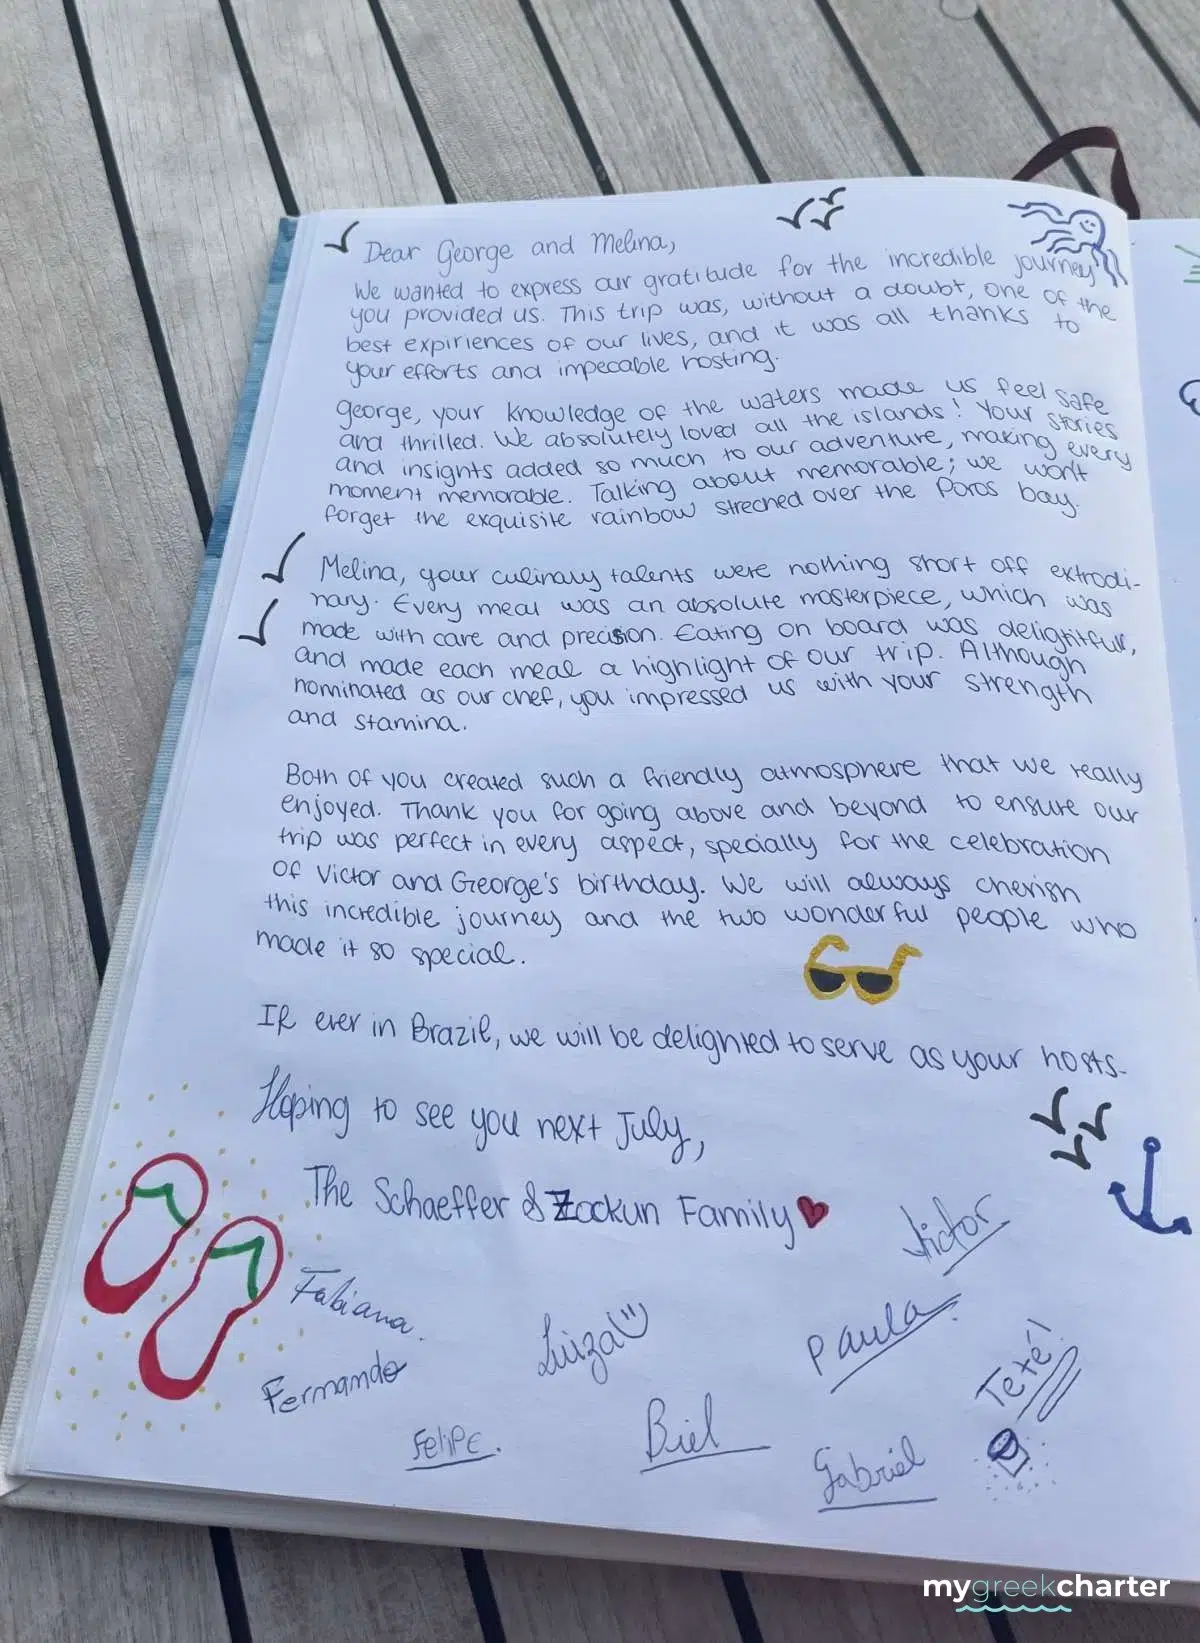 Dear George and Melina,
We wanted to express our gratitude for the incredible journey
you provided us. This trip was, without a doubt, one of the
best expiriences of our lives, and it was all thanks to
your efforts and impecable hosting.
George, your knowledge of the waters made us feel safe
and thrilled. We absolutely loved all the islands! Your stories
and insights added so much to our adventure, making every
moment memorable. Talking about memorable; we won't
forget the exquisite rainbow streched over the Poros bay.
Melina, your culinary talents were nothing short off extrodi-
nary. Every meal was an absolute masterpiece, which was
made with care and precision. Eating on board was delightfull,
and made each meal a highlight of our trip. Although
nominated as our chef, you impressed us with your strength
and stamina.
Both of you created such a friendly atmosphere that we really
enjoyed. Thank you for going above and beyond to ensure our
trip was perfect in every aspect, specially for the celebration
of Victor and George's birthday. We will always cherish
this incredible journey and the two wonderful people who
made it so special.
If ever in Brazil, we will be delighted to serve as your hosts.
Hoping to see you next July,
The Schaeffer & Zockun Family
Victor
Fabiana.
Luiza
Paula.
Teté!
Fernando
Felipe.
Biel
Gabriel
mygreekcharter